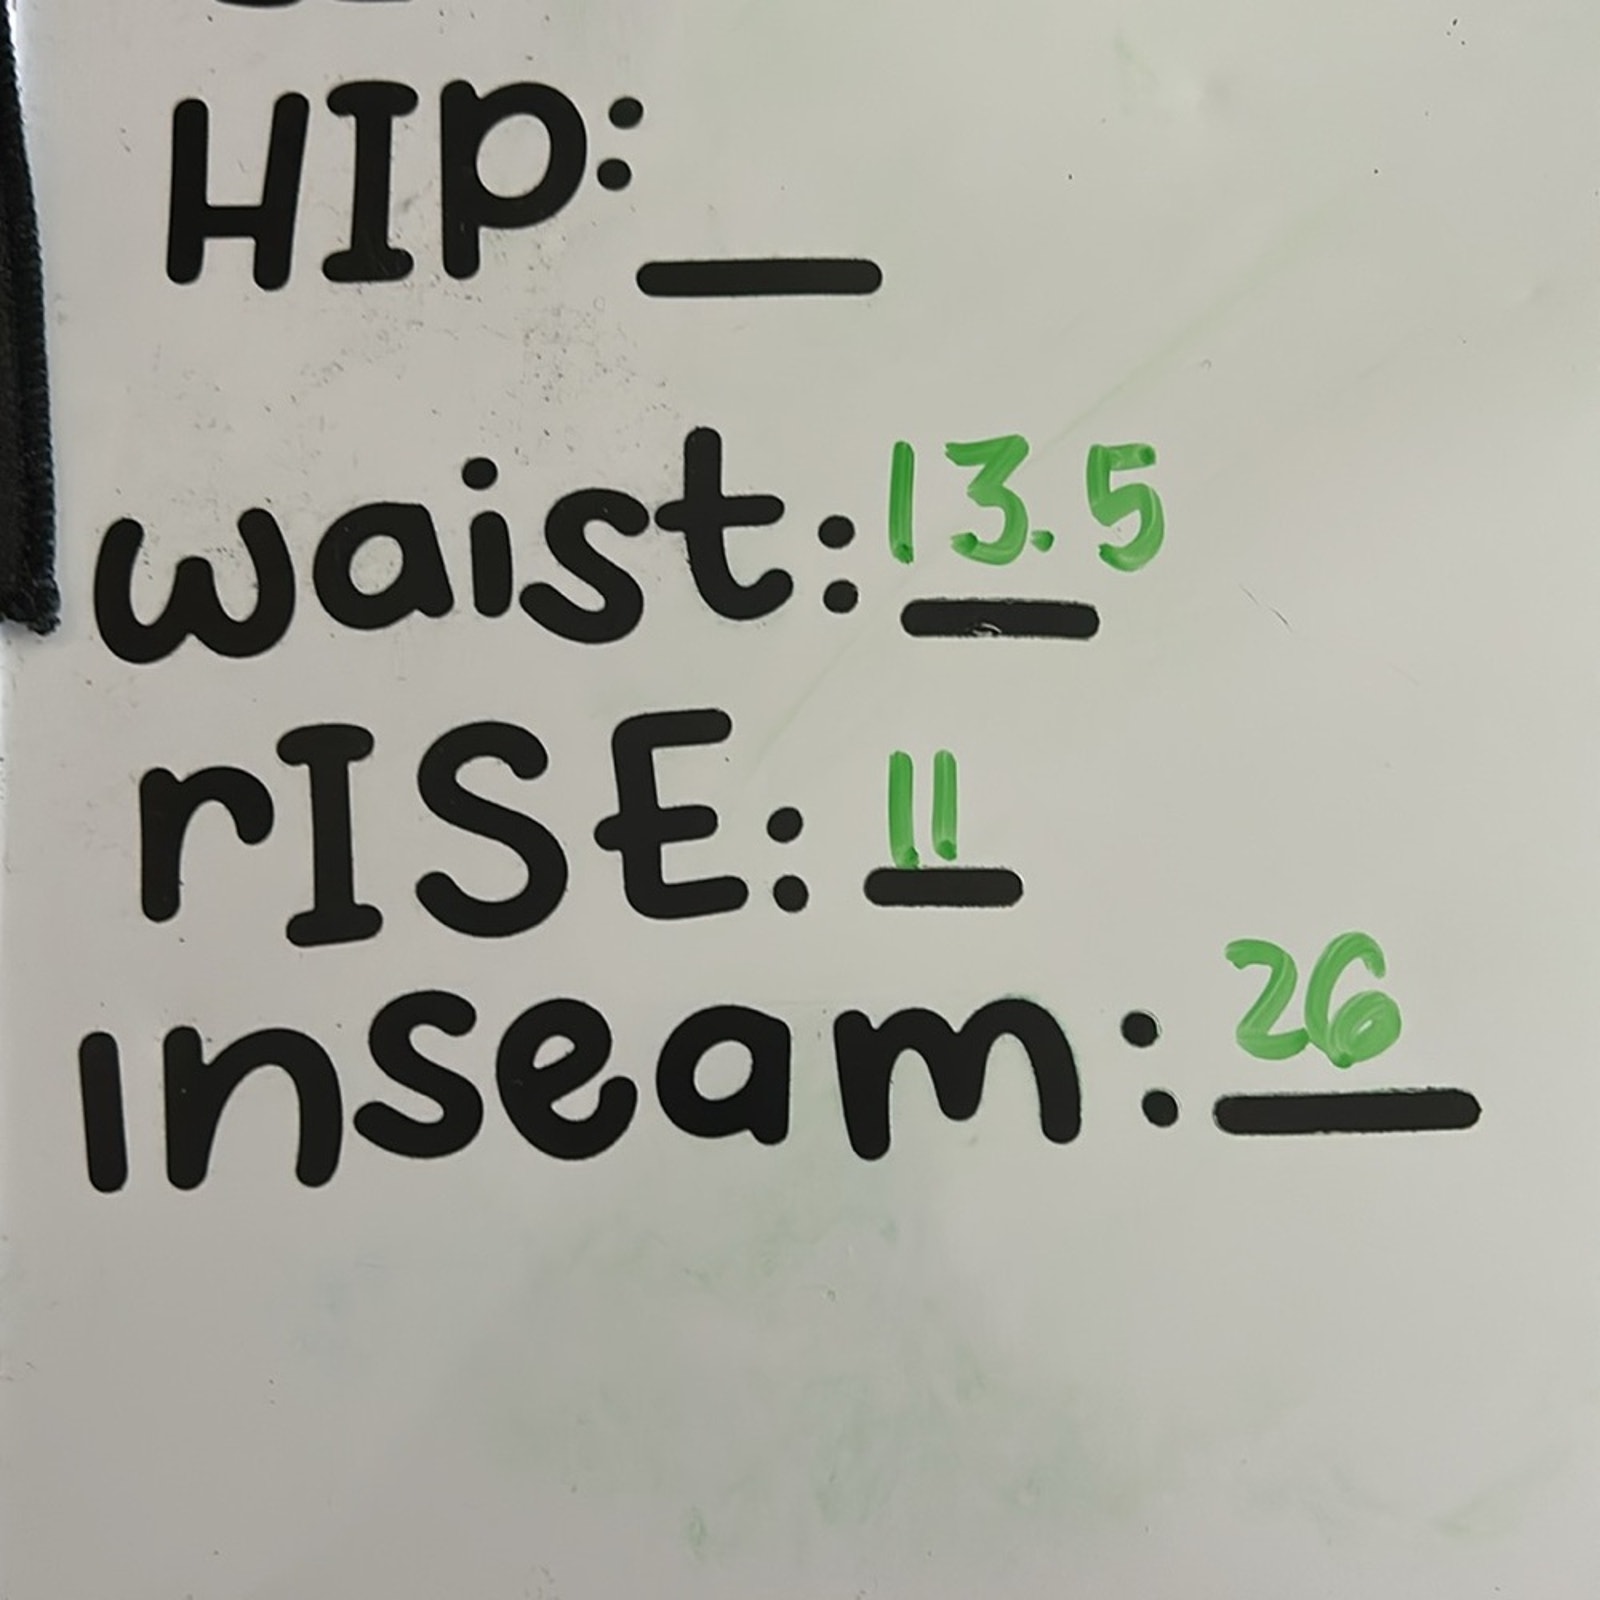 HIP: __
waist: 13.5
rISE: 11
Inseam: 26